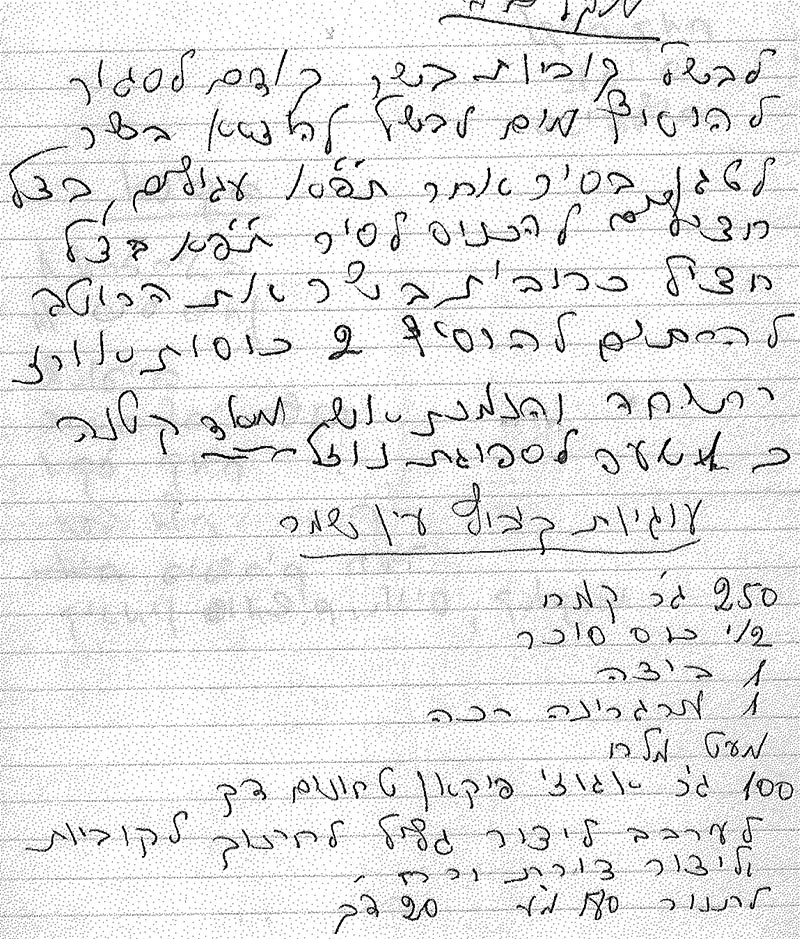 מקלובה
לבשל קוביות בשר קודם לסגור
להוסיף מים לבשל להוציא בשר
לטגן בסיר אחר תפ"א עגולים, בצל
חצילים להכניס לסיר תפ"א בצל
חציל כרובית בשר את הרוטב
להרתיח להוסיף 2 כוסות אורז
רתיחה והנמכת אש מאד קטנה
כ שעה לספיגת נוזל
עוגיות קיבוץ עין שמר
250 ג"ר קמח
1/2 כוס סוכר
1 ביצה
1 מרגרינה רכה
מעט מלח
100 ג"ר אגוזי פיקאן טחונים דק
לערבב ליצור גליל לחתוך לקוביות
וליצור צורת ירח
לתנור 180 מ"ע 20 דק'